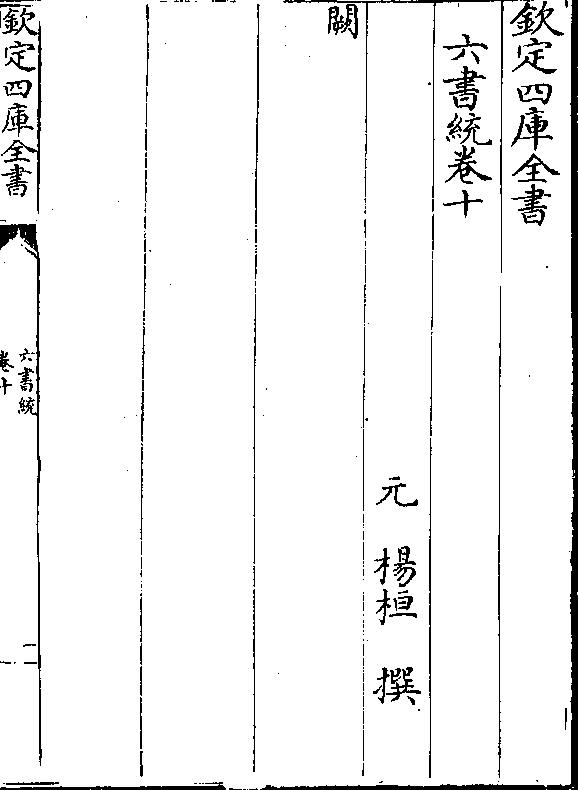 欽定四庫全書
六書統卷十
元 楊桓 撰
闕
欽定四庫全書
六書統
卷十
一